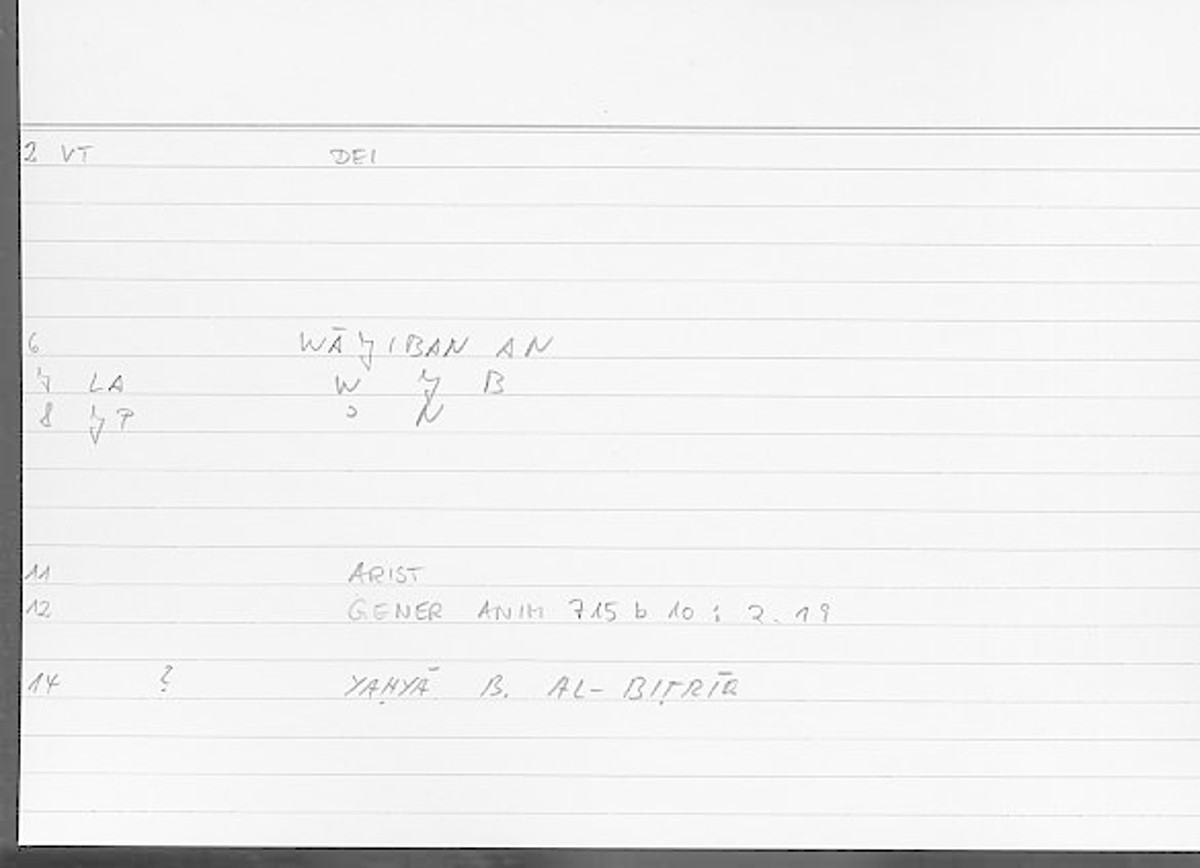 2 VT DEI
6 WĀǦIBAN AN
7 LA W Ǧ B
8 ʾ N
11 ARIST
12 GENER ANIM 715 b 10 ; 2.19
14 ? YAḤYĀ B. AL-BIṬRĪQ